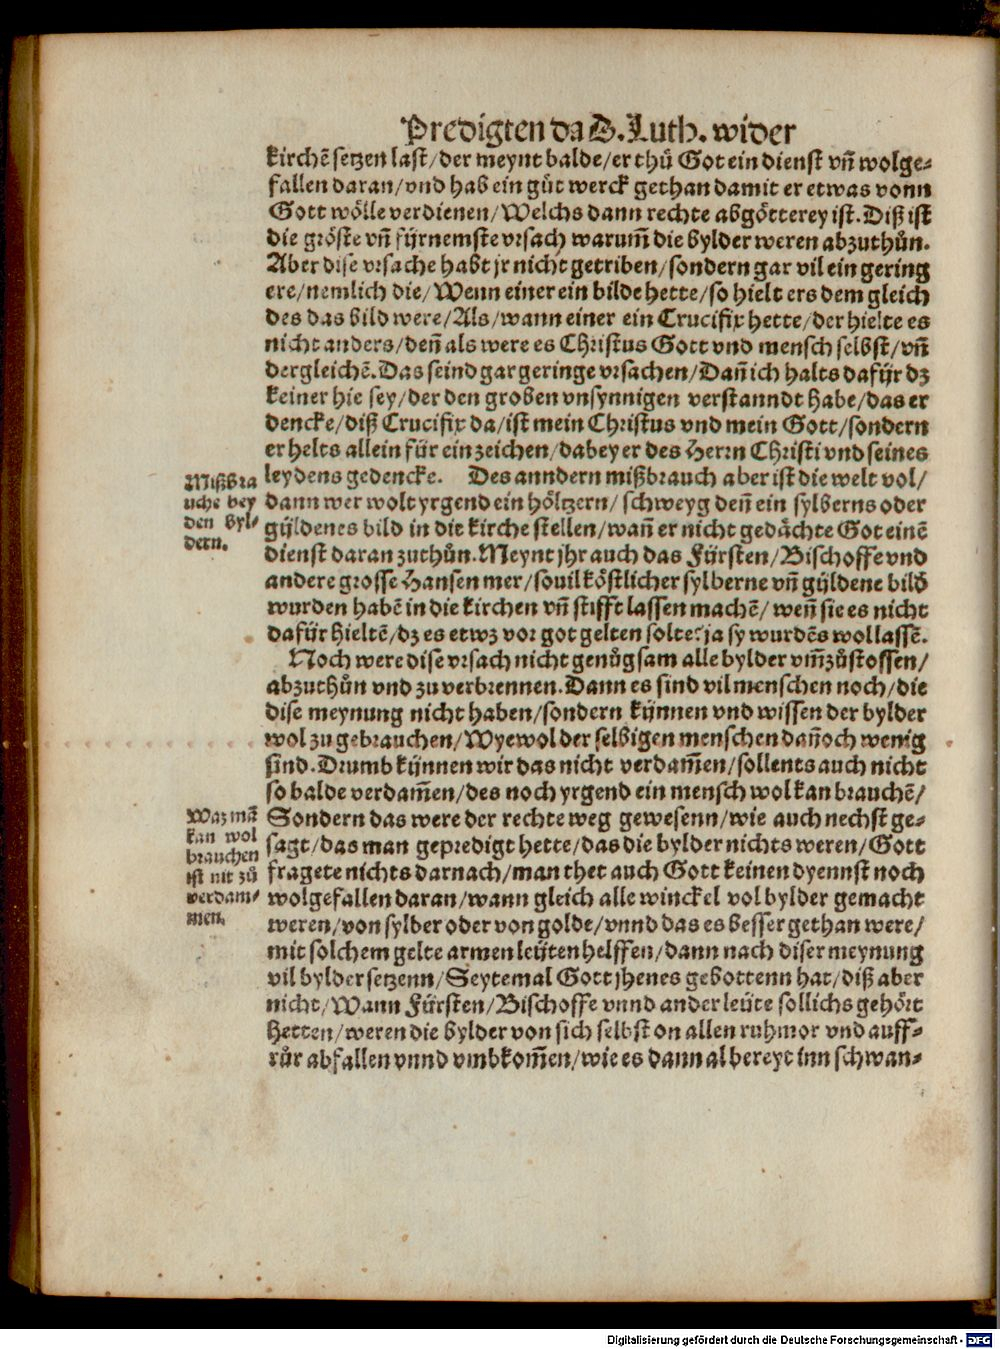 Predigten da D. Luth. wider
kirchē setzen last/der meynt balde/er thů Got ein dienst vñ wolge-
fallen daran/vnd hab ein gůt werck gethan damit er etwas vonn
Gott wölle verdienen/Welchs dann rechte abgötterey ist. Diß ist
die gröste vñ fürnemste vrsach warum̃ die bylder weren abzuthůn.
Aber dise vrsache habt jr nicht getriben/sondern gar vil ein gering
ere/nemlich die/Wenn einer ein bilde hette/so hielt ers dem gleich
des das bild were/Als/wann einer ein Crucifix hette/der hielte es
nicht anders/deñ als were es Christus Gott vnd mensch selbst/vñ
dergleichē. Das seind gar geringe vrsachen/Dañ ich halts dafür dz
keiner hie sey/der den groben vnsynnigen verstanndt habe/das er
dencke/diß Crucifix da/ist mein Christus vnd mein Gott/sondern
er helts allein für ein zeichen/dabey er des Herrn Christi vnd seines
leydens gedencke. Des anndern mißbrauch aber ist die welt vol/
Mißbra
uche bey
den byl-
dern.
dann wer wolt yrgend ein höltzern/schweyg deñ ein sylberns oder
gyldenes bild in die kirche stellen/wañ er nicht gedächte Got einē
dienst daran zuthůn. Meynt jhr auch das Fürsten/Bischoffe vnd
andere grosse Hansen mer/souil köstlicher sylberne vñ gyldene bild
wurden habē in die kirchen vñ stifft lassen machē/weñ sie es nicht
dafür hieltē/dz es etwz vor got gelten solte? ja sy wurdēs wol lassē.
Noch were dise vrsach nicht genůgsam alle bylder vm̃zůstossen/
abzuthůn vnd zu verbrennen. Dann es sind vil menschen noch/die
dise meynung nicht haben/sondern kynnen vnd wissen der bylder
wol zu gebrauchen/Wyewol der selbigen menschen dañoch wenig
sind. Drumb kynnen wir das nicht verdam̃en/sollents auch nicht
so balde verdam̃en/des noch yrgend ein mensch wol kan brauchē/
Waz mā
kan wol
brauchen
ist nit zů
verdam-
men.
Sondern das were der rechte weg gewesenn/wie auch nechst ge-
sagt/das man gepredigt hette/das die bylder nichts weren/Gott
fragete nichts darnach/man thet auch Gott keinen dyennst noch
wolgefallen daran/wann gleich alle winckel vol bylder gemacht
weren/von sylber oder von golde/vnnd das es besser gethan were/
mit solchem gelte armen leüten helffen/dann nach diser meynung
vil bylder setzenn/Seytemal Gott jhenes gebottenn hat/diß aber
nicht/Wann Fürsten/Bischoffe vnnd ander leüte sollichs gehört
hetten/weren die bylder von sich selbst on allen ruhmor vnd auff-
růr abfallen vnnd vmbkom̃en/wie es dann al bereyt inn schwan-
Digitalisierung gefördert durch die Deutsche Forschungsgemeinschaft - DFG